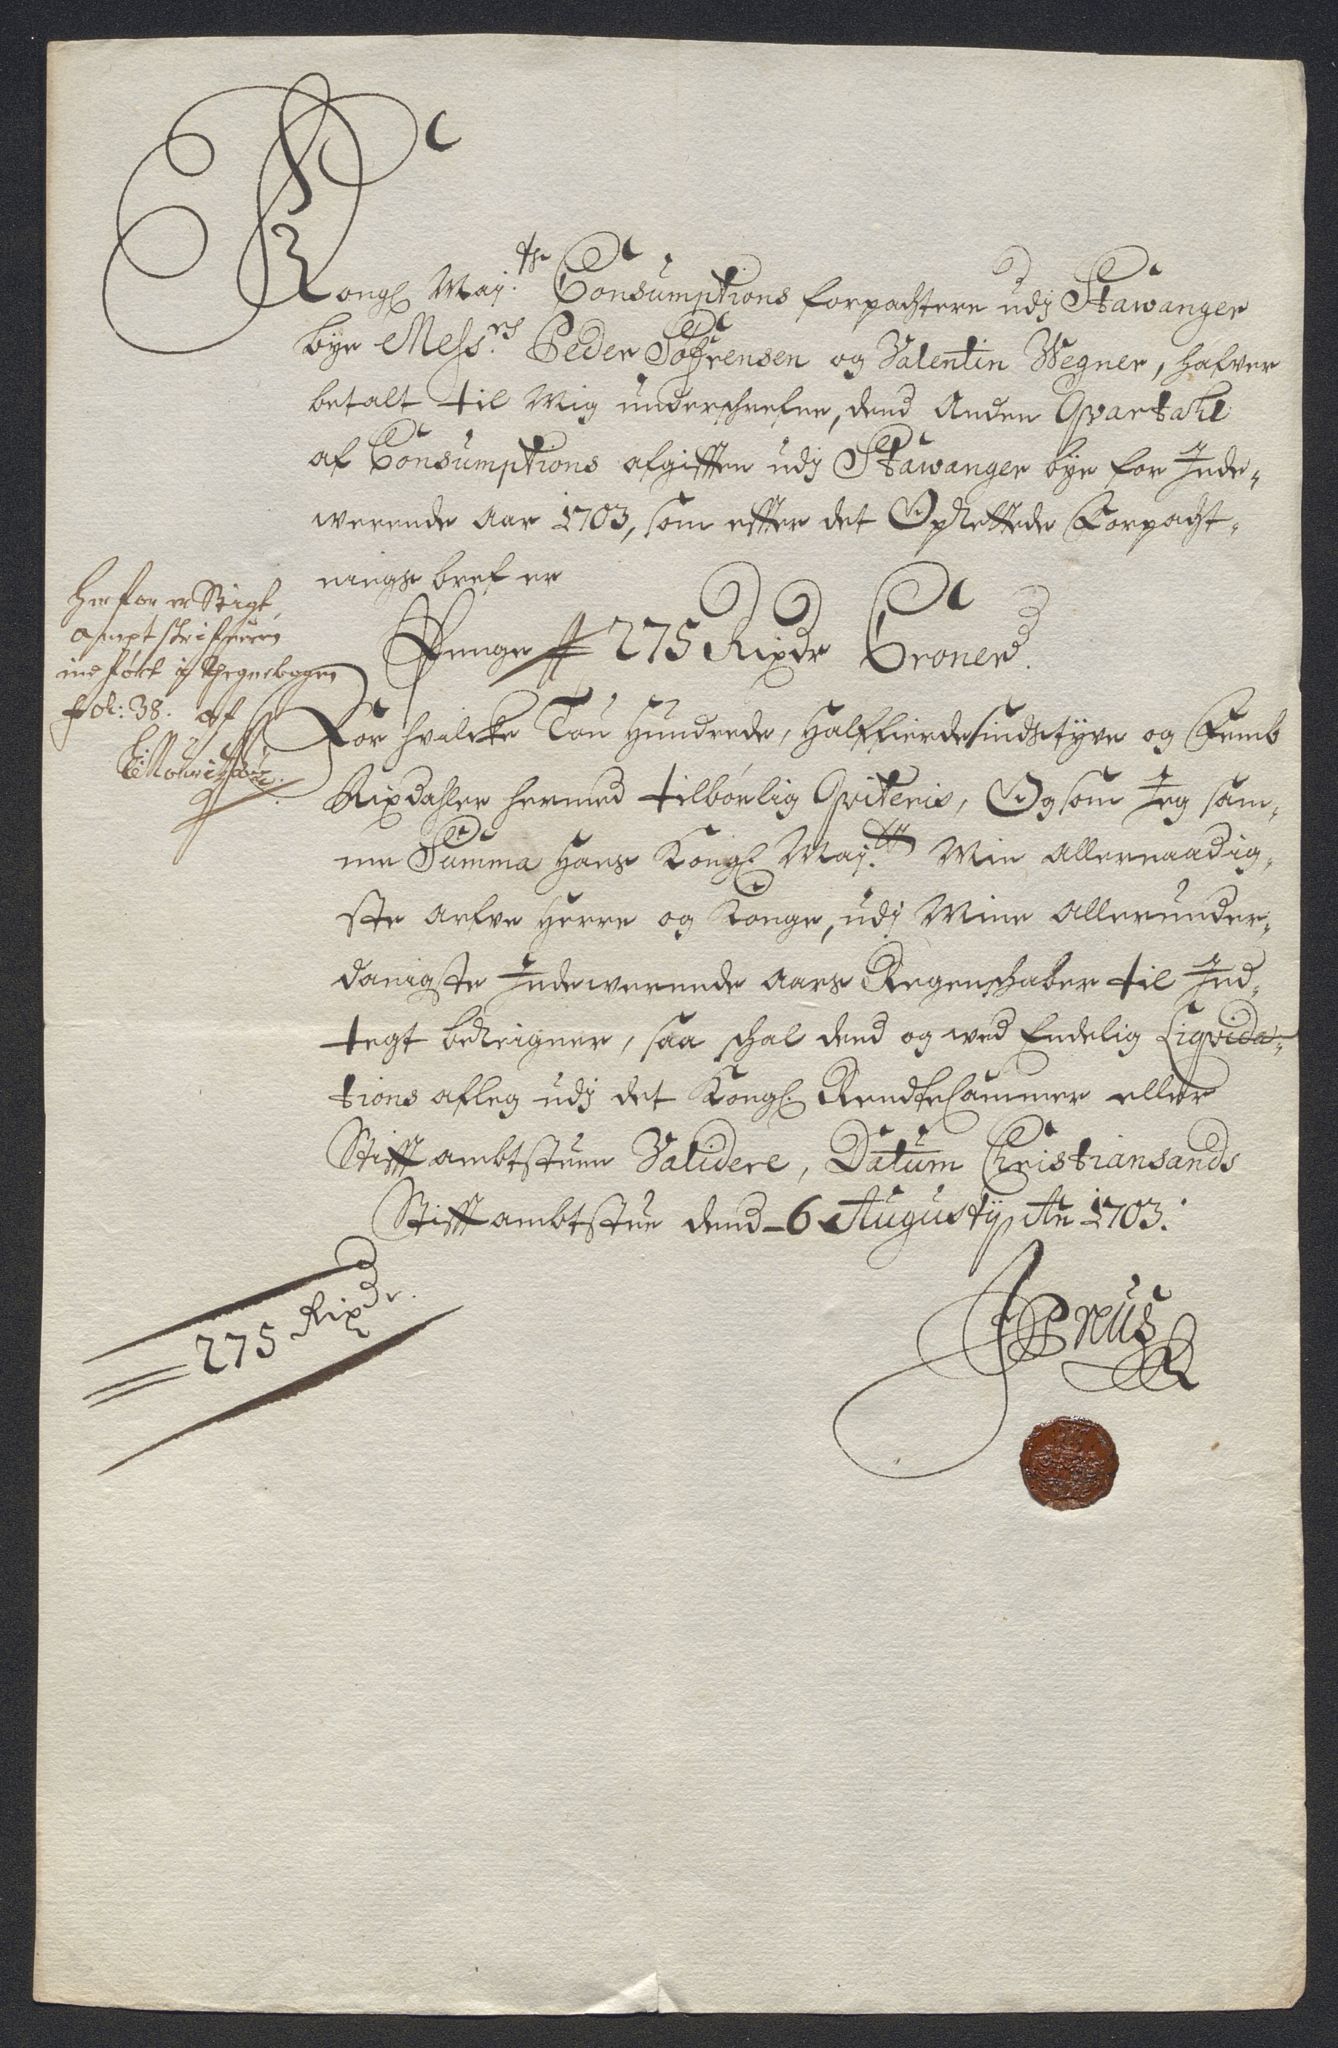 Kongl Maj.tts Consumptions forpachtere udj Stawanger
bye Mess.rs Peder Søfrensen og Valentin Wegner, hafver
betalt til Mig underschrefne, dend Anden Qvartahl
af Consumptions afgifften udj Stawanger bye for Inde-
werende Aar 1703, som effter det Oprettede Forpacht-
nings bref er
Penge 275 Rixdr Croner.
For hvilcke Tou Hundrede, Halffierdesindstyve og Femb
Rixdahler hermed tilbørlig Qviteris, Og som Jeg sam-
me Summa Hans Kongl Maj.tts Min Allernaadig-
ste Arfve Herre og Konge, udj Mine Allerunder-
danigste Indewerende Aars Regenschaber til Ind-
tegt beregner, saa schal dend og wed Endelig Liqvida-
tions afleg udj det Kongl. RendteCammer eller
Stifft ambtstuen Validere, Datum Christiansands
Stifft ambtstue dend 6 Augustij Ao 1703.
Herfor er Stigt
ampt skrifveren
ind ført i Regnsbogen
fol: 38. af
275 Rixdr.